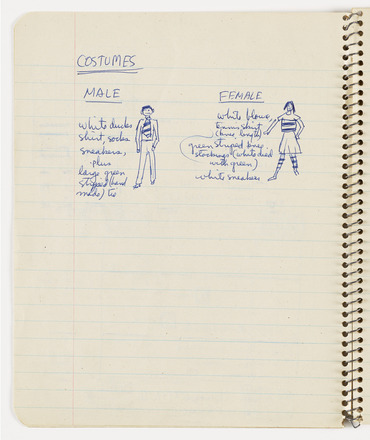 COSTUMES
MALE
white ducks
shirt, socks
sneakers,
plus
large green
striped (hand
made) tie
FEMALE
white blouse,
tennis skirt
(knee length)
green striped knee
stockings (white died
with green)
white sneakers